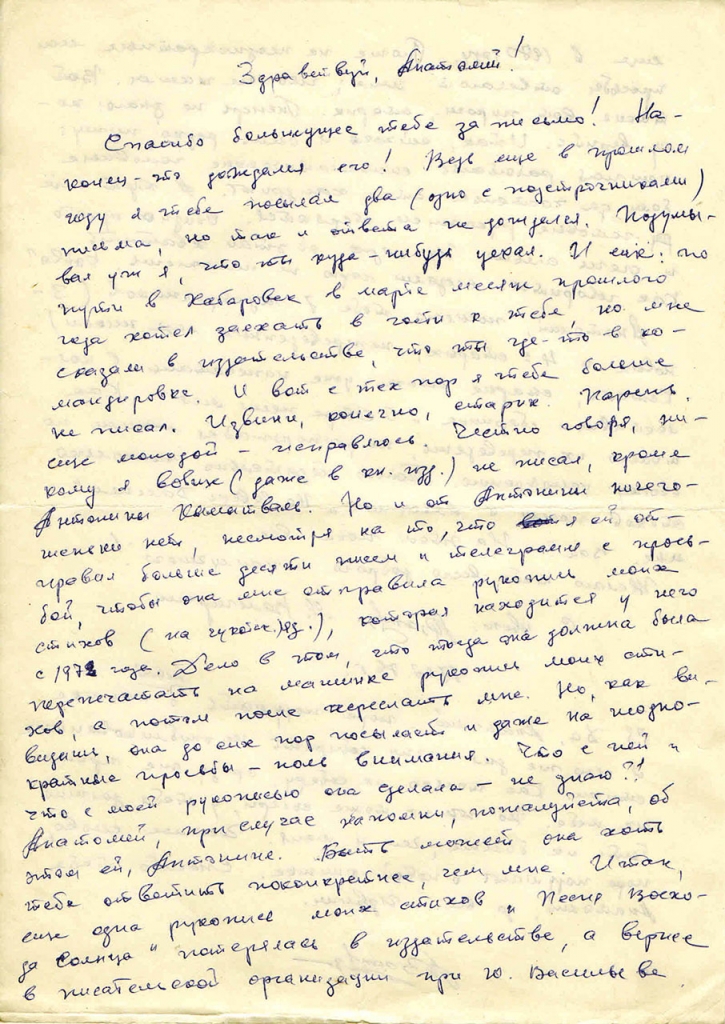 Здравствуй, Анатолий!
Спасибо большущее тебе за письмо! На-
конец-то дождался его! Ведь еще в прошлом
году я тебе посылал два (одно с подстрочниками)
письма, но так и ответа не дождался. Подумы-
вал уж я, что ты куда-нибудь уехал. И еще: по
пути в Хабаровск в марте месяце прошлого
года хотел заехать в гости к тебе, но мне
сказали в издательстве, что ты где-то в ко-
мандировке. И вот с тех пор я тебе больше
не писал. Извини, конечно, старик. Парень
еще молодой - исправлюсь. Честно говоря, ни-
кому я вовсе (даже в кн. изд.) не писал, кроме
Антонины Кымытваль. Но и от Антонины ничего-
шеньки нет, несмотря на то, что я ей от-
правил больше десяти писем и телеграмм с прось-
бой, чтобы она мне отправила рукопись моих
стихов (на чукотск. яз.), которая находится у него
с 1972 года. Дело в том, что тогда она должна была
перепечатать на машинке рукопись моих сти-
хов, а потом после переслать мне. Но, как ви-
видишь, она до сих пор посылает и даже на неодно-
кратные просьбы - ноль внимания. Что с ней и
что с моей рукописью она сделала - не знаю?!
Анатолий, при случае напомни, пожалуйста, об
этом ей, Антонине. Быть может она хоть
тебе ответить поконкретнее, чем мне. Итак,
еще одна рукопись моих стихов "Песня Восхо-
да Солнца" потерялась в издательстве, а вернее
в писательской организации при Ю. Васильеве